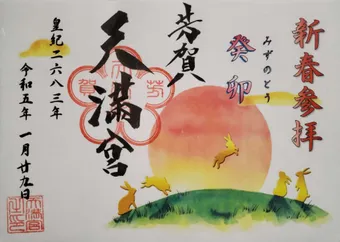 新春参拝
癸卯
みずのとう
芳賀
天満宮
皇紀二六八三年
令和五年 一月廿九日